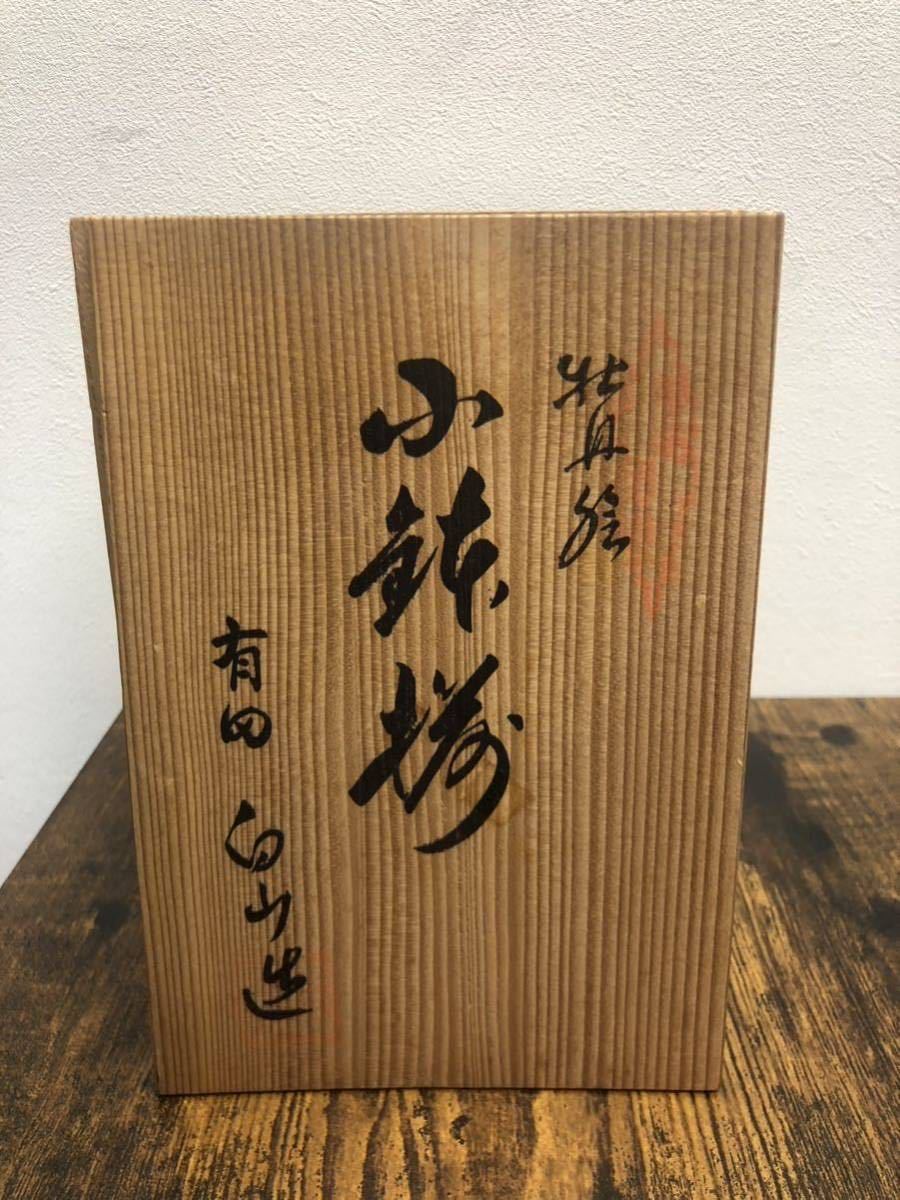 牡丹絵
小鉢揃
有田 白山造